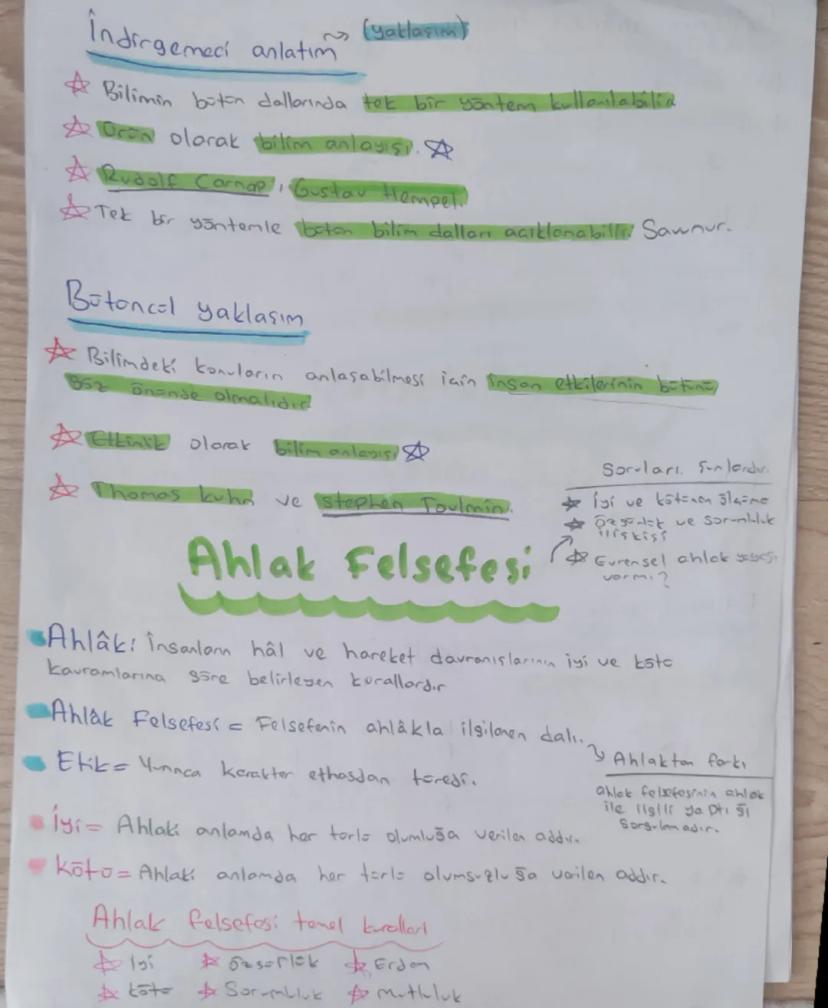 İndirgemeci anlatım (yaklaşım)
Bilimin bütün dallarında tek bir yöntem kullanılabilir
Ürün olarak bilim anlayışı.
Rudolf Carnap, Gustav Hempel.
Tek bir yöntemle bütün bilim dalları açıklanabilir! Savunur.
Bütüncül yaklaşım
Bilimdeki konuların anlaşabilmesi için insan etkilerinin bütünü
göz önünde olmalıdır
Etkinlik olarak bilim anlayışı
Thomas kuhn ve stephen Toulmin.
Soruları. Şunlardır.
İyi ve kötünün ölçüme
özgürlük ve sorumluluk
ilişkisi
Evrensel ahlak yasası
varmı?
Ahlak Felsefesi
Ahlâk: İnsanların hâl ve hareket davranışlarının iyi ve kötü
kavramlarına göre belirleyen kurallardır
Ahlâk Felsefesi = Felsefenin ahlâkla ilgilenen dalı.
Etik = Yunnca karakter ethosdan türedi.
Ahlaktan farkı
ahlak felsefesinin ahlak
ile ilgili yaptığı
Sorgulamadır.
İyi = Ahlaki anlamda her türlü olumluğa verilen addır.
kötü = Ahlaki anlamda her türlü olumsuzluğa verilen addır.
Ahlak felsefesi temel kuralları
İyi özgürlük Erdem
kötü Sorumluluk mutluluk